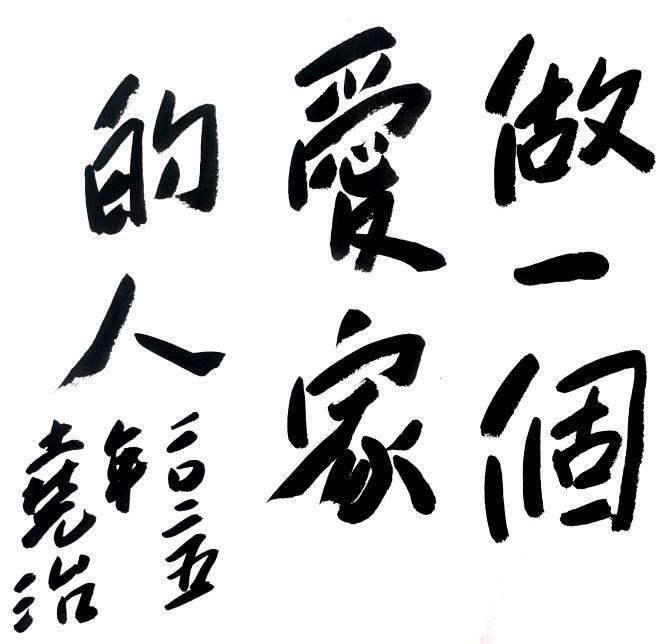 做一個
愛家
的人
二〇二五
年
堯治